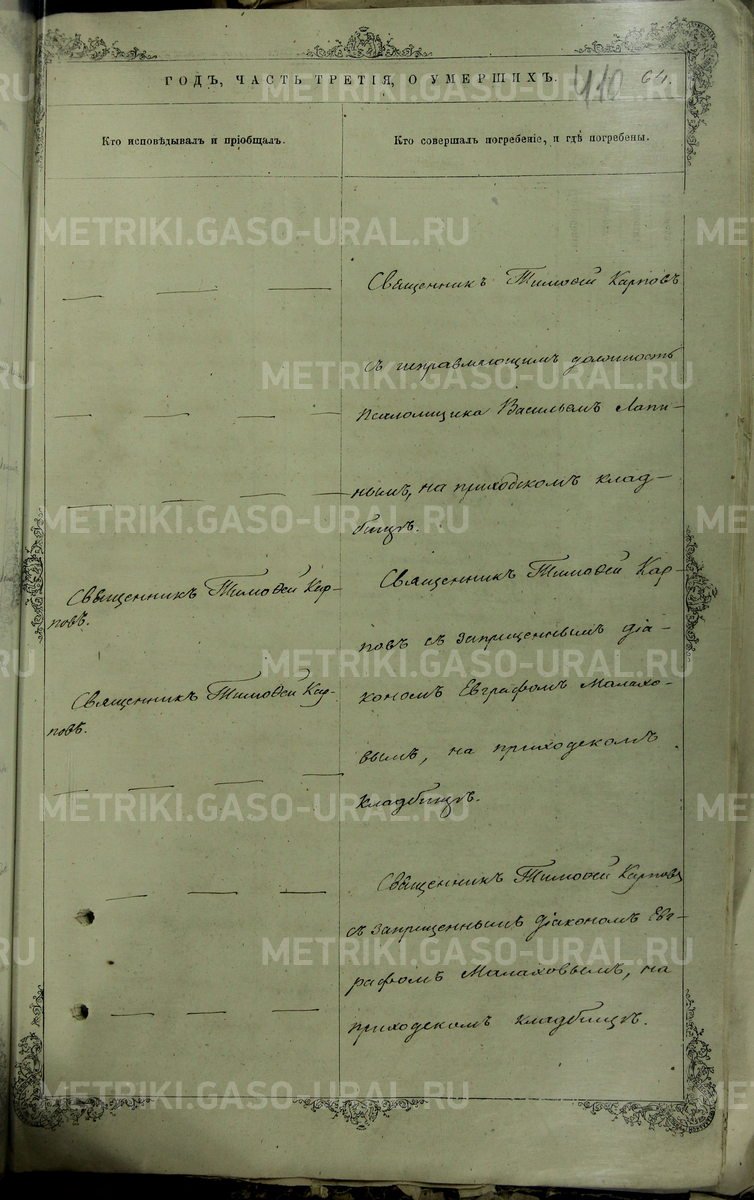 ГОДЪ, ЧАСТЬ ТРЕТІЯ, О УМЕРШИХЪ.
410
64.
Кто исповѣдывалъ и пріобщалъ.
Кто совершалъ погребеніе, и гдѣ погребены.
Священникъ Тимоѳей Карповъ
съ исправляющимъ должность
псаломщика Васильемъ Лапи-
нымъ, на приходскомъ клад-
бищѣ.
Священникъ Тимоѳей Кар-
повъ.
Священникъ Тимоѳей Кар-
повъ съ запрещеннымъ діа-
кономъ Евграфомъ Малахо-
вымъ, на приходскомъ
кладбищѣ.
Священникъ Тимоѳей Кар-
повъ.
Священникъ Тимоѳей Карповъ
съ запрещеннымъ діакономъ Ев-
графомъ Малаховымъ, на
приходскомъ кладбищѣ.
METRIKI.GASO-URAL.RU